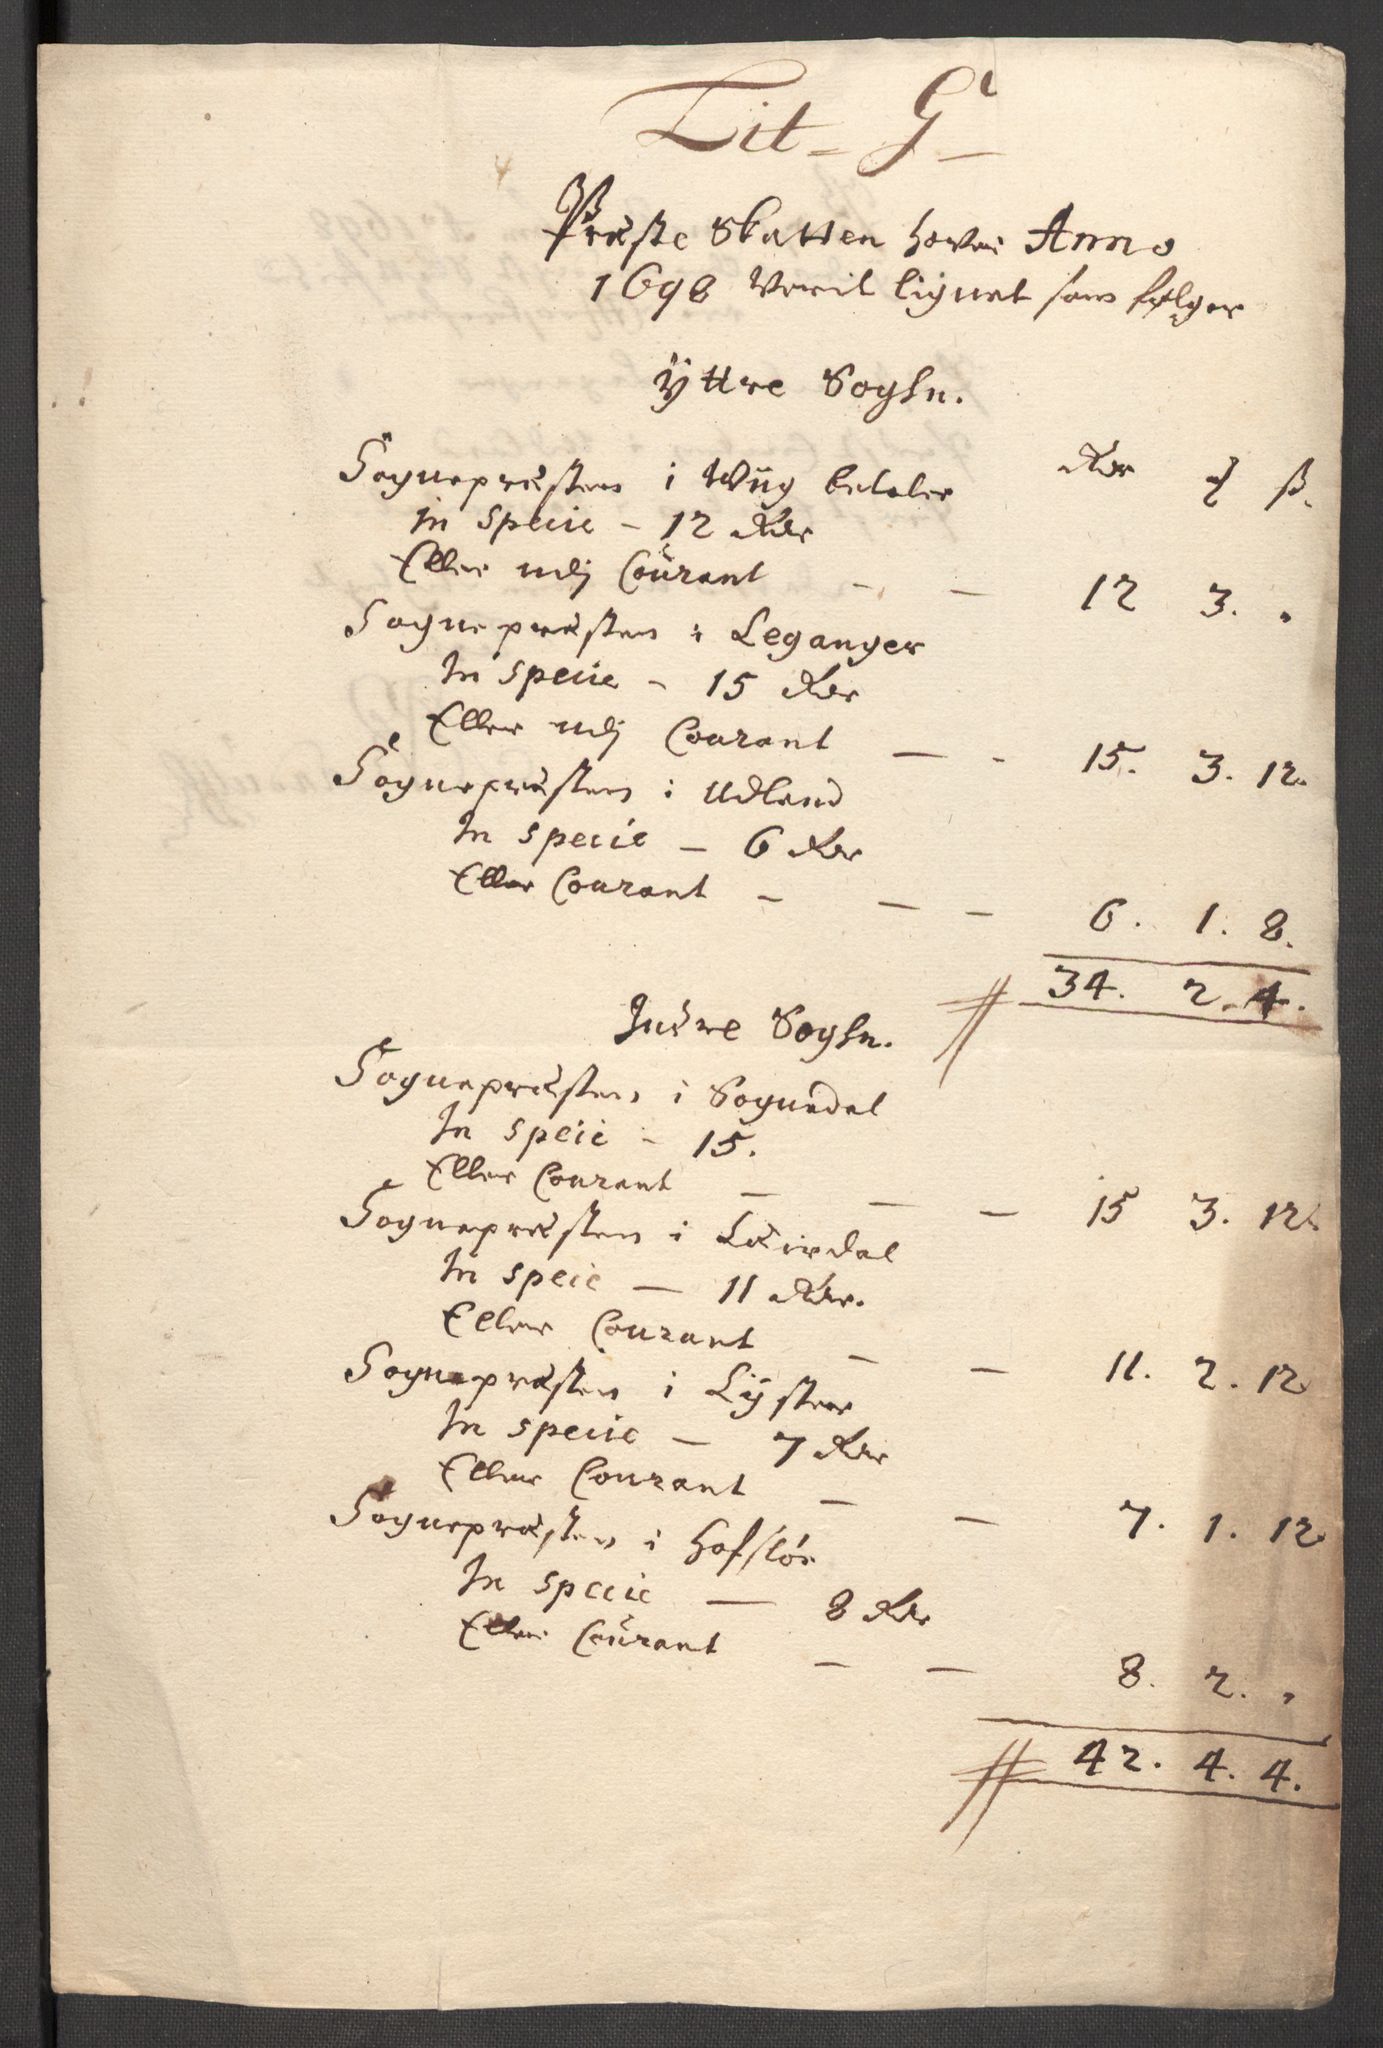 Lit- G-
Præste Skatten hvor Anno
1698 Verit lignet som følger
Ÿttre Sogfn.
Sognepræsten i Wiig betaler Rdr ₰ ß.
in Specie - 12 Rdr
Eller udj Coŭrant - - 12 3. "
Sognepræsten i Leganger
In Specie - 15 Rdr
Eller udj Courant - - 15. 3. 12.
Sognepræsten i Udland
In Specie - 6 Rdr
Eller Courant - - - 6. 1. 8.
34. 2. 4.
Indre Sogfn.
Sognepræsten i Sognedal
In Speie - 15.
Eller Courant - - - 15 3. 12.
Sognepræsten i Læirdal
In Speie - 11 Rdr.
Eller Courant - - 11. 2. 12
Sognepræsten i Lÿster
In Specie - 7 Rdr
Eller Courant - - 7. 1. 12
Sognepræsten i Hafslór
In Specie - 8 Rdr
Eller Coŭrant - - 8. 2. "
42. 4. 4.